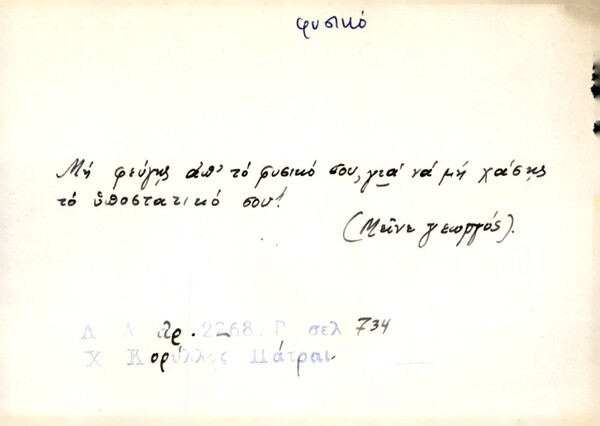 φυσικό
Μή φεύγῃς ἀπ' τό φυσικό σου, γιά νά μή χάσῃς
τό ὑποστατικό σου!
(Μεῖνε γεωργός).
Λ Α ἀρ. 2268 Γ σελ 734
Χ Κορύλλος Πάτραι.